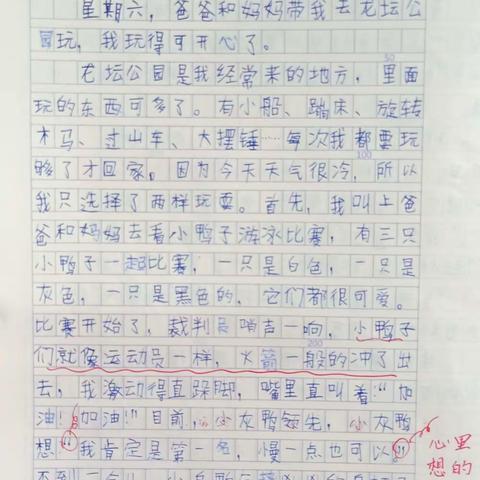 星期六，爸爸和妈妈带我去龙坛公
园玩，我玩得可开心了。
龙坛公园是我经常来的地方，里面
50
玩的东西可多了。有小船、蹦床、旋转
木马、过山车、大摆锤……每次我都要玩
100
够了才回家。因为今天天气很冷，所以
我只选择了两样玩耍。首先，我叫上爸
爸和妈妈去看小鸭子游泳比赛，有三只
小鸭子一起比赛，一只是白色，一只是
灰色，一只是黑色的，它们都很可爱。
比赛开始了，裁判员哨声一响，小鸭子
200
们就像运动员一样，火箭一般的冲了出
去，我激动得直跺脚，嘴里直叫着：“加
油！加油！”目前，小灰鸭领先，小灰鸭
想：“我肯定是第一名，慢一点也可以。”
心里
想的